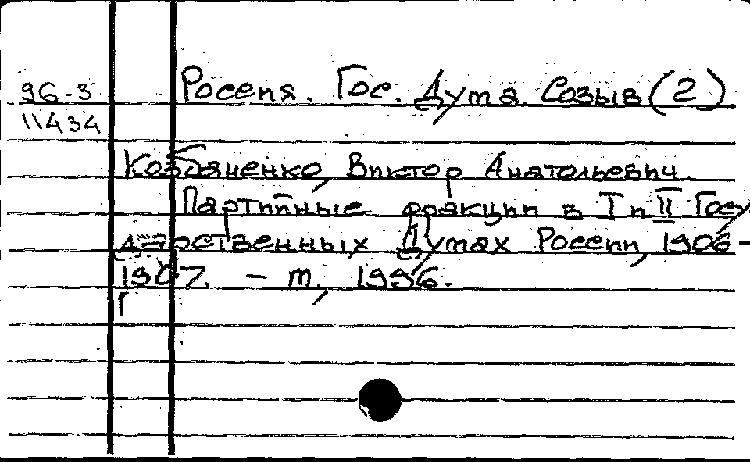 96-3 Россия. Гос. Дума. Созыв (2)
11434
Козбаненко, Виктор Анатольевич.
Партийные фракции в I и II Госу
дарственных Думах России, 1906-
1907. - М., 1996.